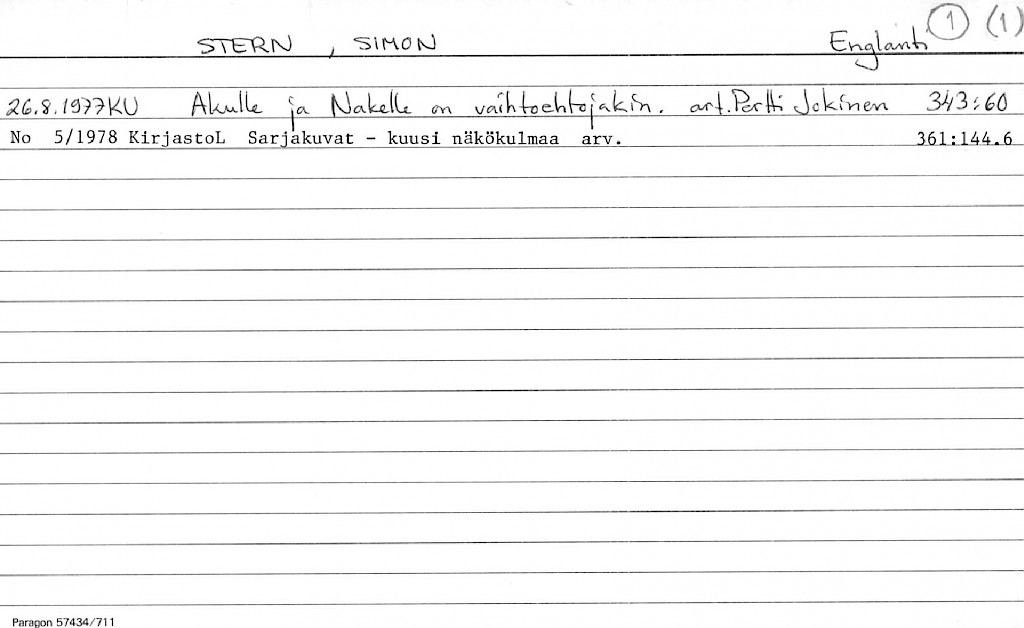 STERN , SIMON Englanti 1 (1)
26.8.1977KU Akulle ja Nakelle on vaihtoehtojakin. art. Pertti Jokinen 343:60
No 5/1978 KirjastoL Sarjakuvat - kuusi näkökulmaa arv. 361:144.6
Paragon 57434/711